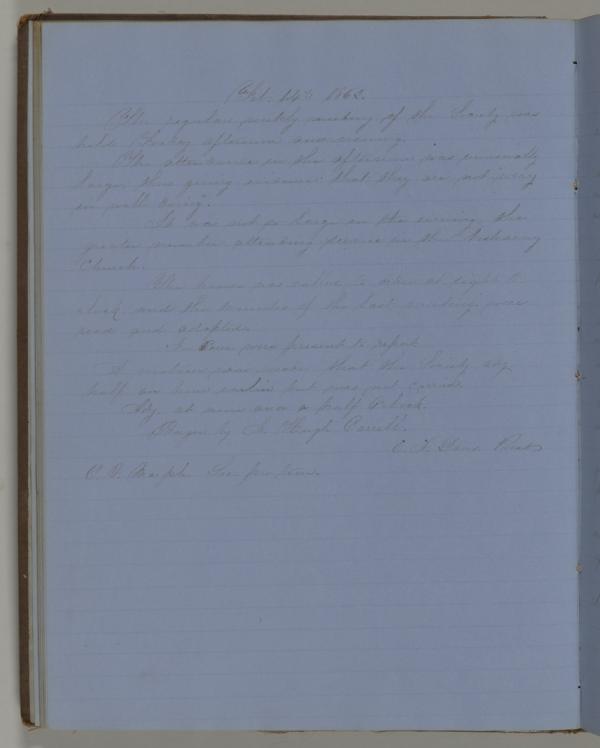 Feb. 14th 1862.
The regular weekly meeting of the Society was
held Friday afternoon and evening.
The attendance in the afternoon was unusually
large, thus giving evidence that they are not weary
in well doing.
It was not so large in the evening, the
greater number attending service in the
Church.
The house was called to order at eight o
clock and the minutes of the last meeting were
read and adopted.
were present to report
A motion was made that the Society adj.
half an hour earlier but was not carried.
Adj. at nine and a half O clock.
Prayer by Hugh Carroll.
C. F. Pres
C. P. Sec pro tem.